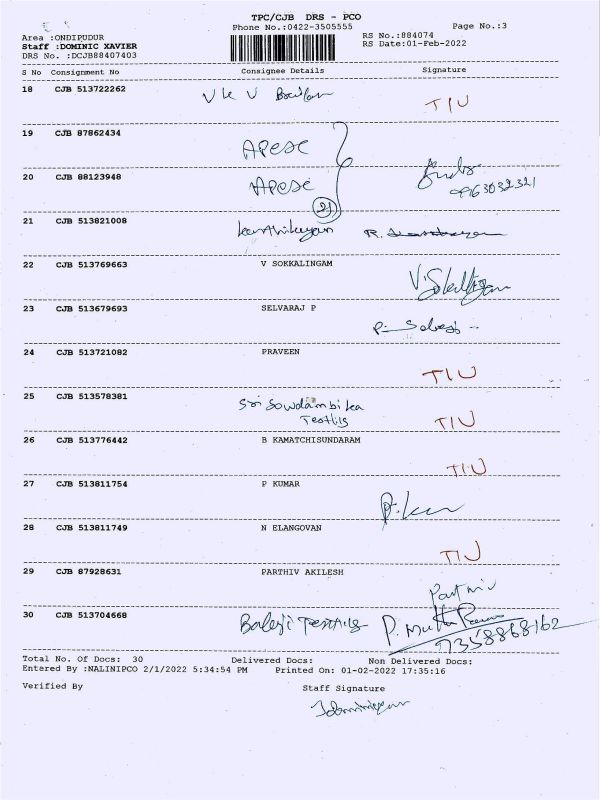 TPC/CJB DRS - PCO
Phone No.:0422-3505555 Page No.:3
Area :ONDIPUDUR RS No.:884074
Staff :DOMINIC XAVIER RS Date:01-Feb-2022
DRS No. :DCJB88407403
S No Consignment No Consignee Details Signature
18 CJB 513722262 V k V
TIU
19 CJB 87862434
APESC
20 CJB 88123948
APESC
21
21 CJB 513821008
Karthikeyan R.
22 CJB 513769663 V SOKKALINGAM
23 CJB 513679693 SELVARAJ P
24 CJB 513721082 PRAVEEN
TIU
25 CJB 513578381
Sri Sowdambika
TIU
26 CJB 513776442 B KAMATCHISUNDARAM
TIU
27 CJB 513811754 P KUMAR
28 CJB 513811749 N ELANGOVAN
TIU
29 CJB 87928631 PARTHIV AKILESH
30 CJB 513704668 Balaji
7358868162
Total No. Of Docs: 30 Delivered Docs: Non Delivered Docs:
Entered By :NALINIPCO 2/1/2022 5:34:54 PM Printed On: 01-02-2022 17:35:16
Verified By Staff Signature